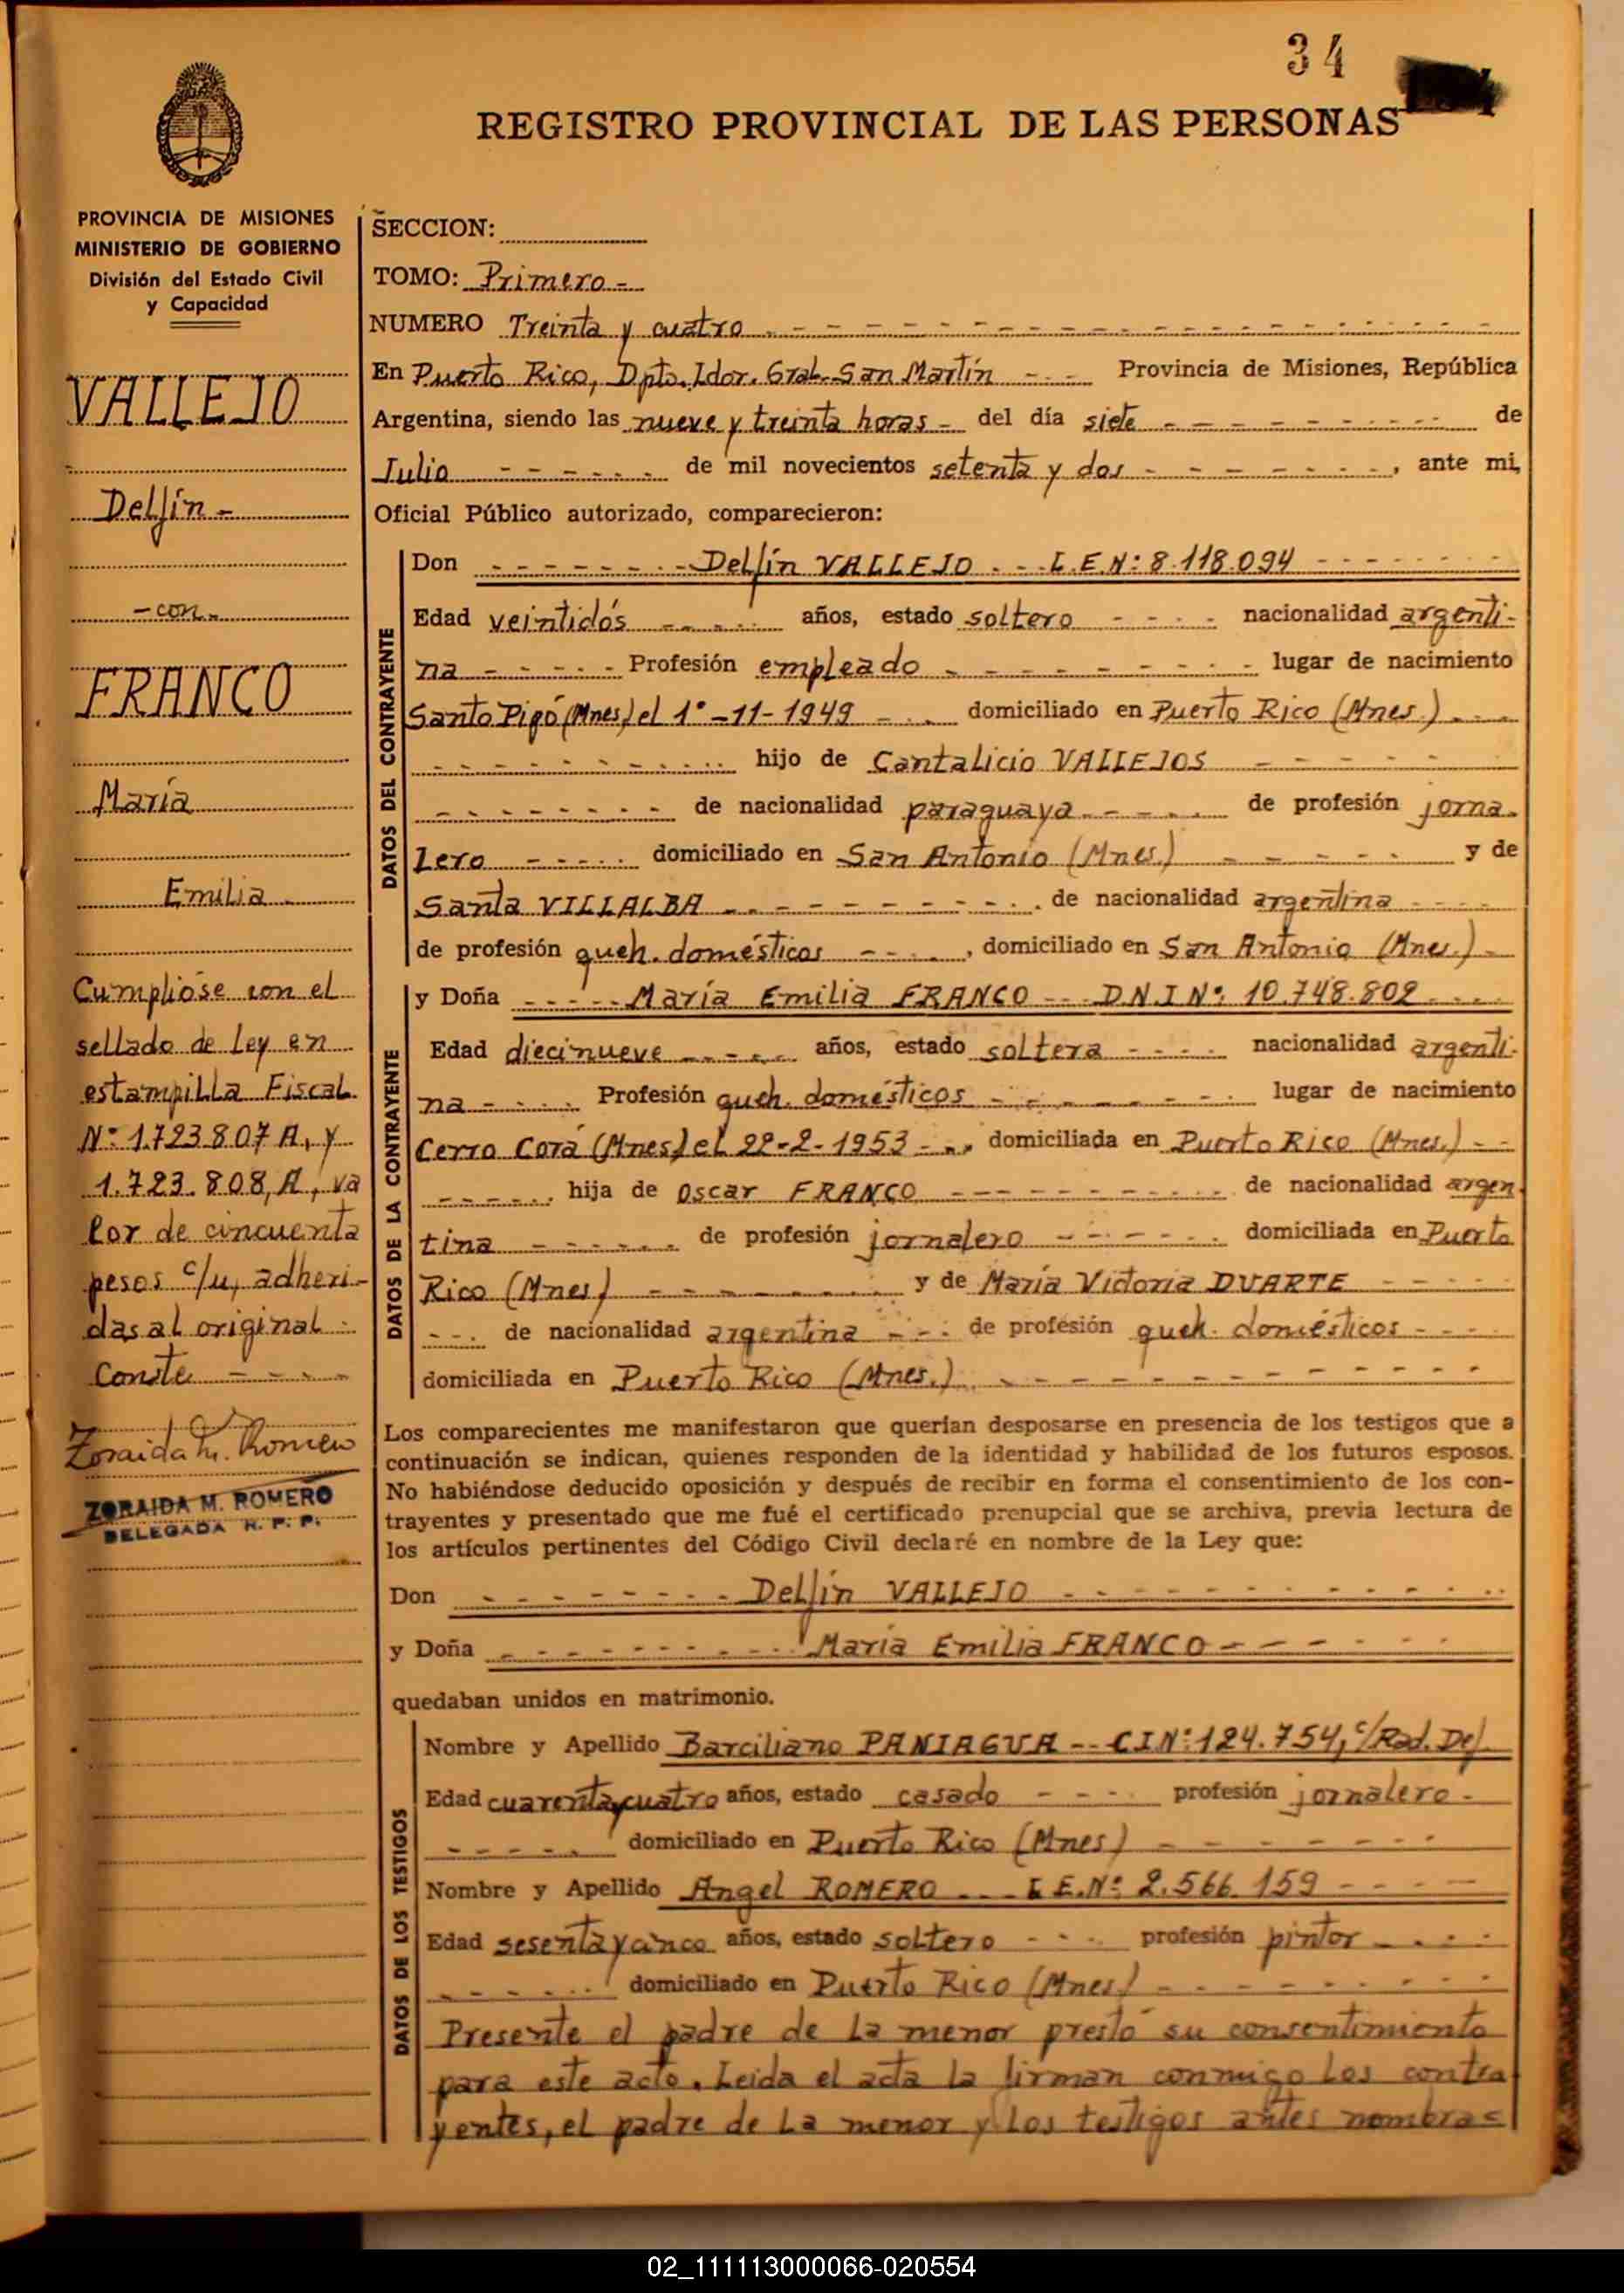 34
REGISTRO PROVINCIAL DE LAS PERSONAS
PROVINCIA DE MISIONES
MINISTERIO DE GOBIERNO
División del Estado Civil
y Capacidad
VALLEJO
Delfín -
- con -
FRANCO
María
Emilia
Cumplióse con el
sellado de Ley en
estampilla Fiscal
Nº 1.723.807 A, y
1.723.808, A, va
lor de cincuenta
pesos c/u, adheri-
das al original -
Conste - - - -
Zoraida M. Romero
ZORAIDA M. ROMERO
DELEGADA R. P. P.
SECCION:
TOMO: Primero -
NUMERO Treinta y cuatro
En Puerto Rico, Dpto. Ldor. Gral. San Martín - - - Provincia de Misiones, República
Argentina, siendo las nueve y treinta horas - del día siete - - - de
Julio - - - de mil novecientos setenta y dos - - -, ante mi,
Oficial Público autorizado, comparecieron:
DATOS DEL CONTRAYENTE
Don - - - Delfín VALLEJO - - - L.E.Nº: 8.118.094 - - -
Edad veintidós - - - años, estado soltero - - - nacionalidad argenti-
na - - - Profesión empleado - - - lugar de nacimiento
Santo Pipó (Mnes) el 1º-11-1949 - - - domiciliado en Puerto Rico (Mnes.) - - -
- - - hijo de Cantalicio VALLEJOS - - -
- - - de nacionalidad paraguaya - - - de profesión jorna-
lero - - - domiciliado en San Antonio (Mnes.) - - - y de
Santa VILLALBA - - - de nacionalidad argentina - - -
de profesión queh. domésticos - - -, domiciliado en San Antonio (Mnes.) -
DATOS DE LA CONTRAYENTE
y Doña - - - María Emilia FRANCO - - - D.N.I Nº: 10.748.802 - - -
Edad diecinueve - - - años, estado soltera - - - nacionalidad argenti-
na - - - Profesión queh. domésticos - - - lugar de nacimiento
Cerro Corá (Mnes) el 22-2-1953 - - -, domiciliada en Puerto Rico (Mnes.) - -
- - - hija de Oscar FRANCO - - - de nacionalidad argen
tina - - - de profesión jornalero - - - domiciliada en Puerto
Rico (Mnes) - - - y de María Victoria DUARTE - - -
- - - de nacionalidad argentina - - - de profesión queh. domésticos - - -
domiciliada en Puerto Rico (Mnes.) - - -
Los comparecientes me manifestaron que querían desposarse en presencia de los testigos que a
continuación se indican, quienes responden de la identidad y habilidad de los futuros esposos.
No habiéndose deducido oposición y después de recibir en forma el consentimiento de los con-
trayentes y presentado que me fué el certificado prenupcial que se archiva, previa lectura de
los artículos pertinentes del Código Civil declaré en nombre de la Ley que:
Don - - - Delfín VALLEJO - - -
y Doña - - - María Emilia FRANCO - - -
quedaban unidos en matrimonio.
DATOS DE LOS TESTIGOS
Nombre y Apellido Barciliano PANIAGUA - - C.I.Nº: 124.754, c/Rad. Def.
Edad cuarenta y cuatro años, estado casado - - - profesión jornalero -
- - - domiciliado en Puerto Rico (Mnes) - - -
Nombre y Apellido Angel ROMERO - - - L.E.Nº 2.566.159 - - -
Edad sesenta y cinco años, estado soltero - - - profesión pintor - - -
- - - domiciliado en Puerto Rico (Mnes) - - -
Presente el padre de la menor prestó su consentimiento
para este acto. Leida el acta la firman conmigo los contra
yentes, el padre de la menor y los testigos antes nombra=
02_111113000066-020554